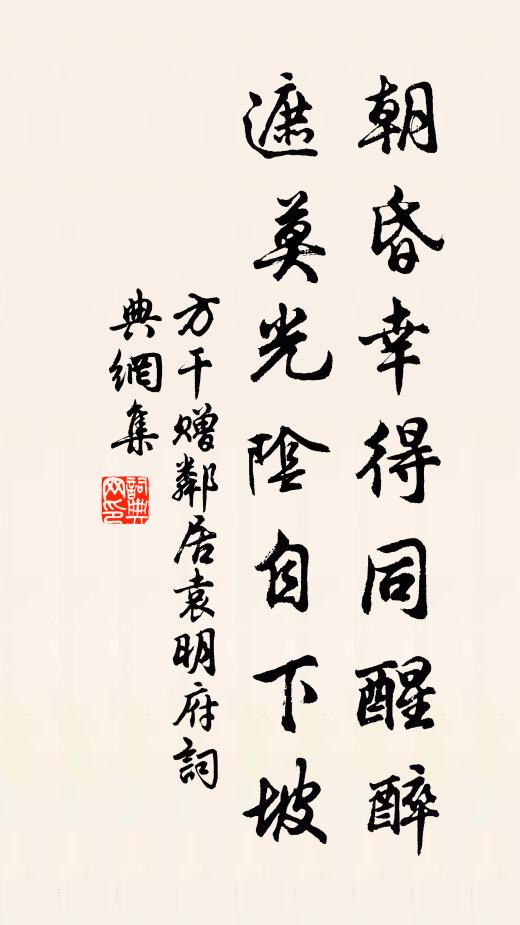 朝昏幸得同醒醉
遮莫光陰自下坡
方干贈鄰居袁明府詞
典網集
詞典网印